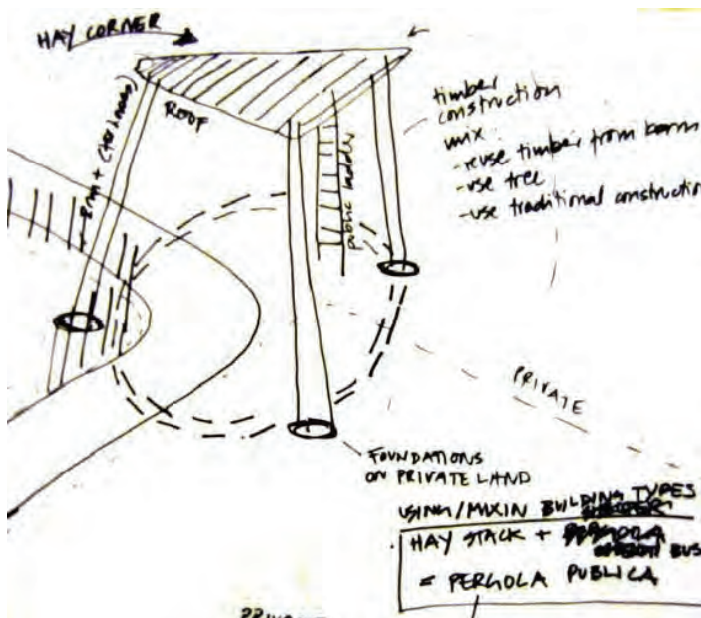 HAY CORNER
ROOF
public ladder
timber
construction
mix
-reuse timber from barn
-use tree
-use traditional constructio
PRIVATE
FOUNDATIONS
ON PRIVATE LAND
USING/MIXIN BUILDING TYPES
HAY STACK +
BUS
= PERGOLA PUBLICA